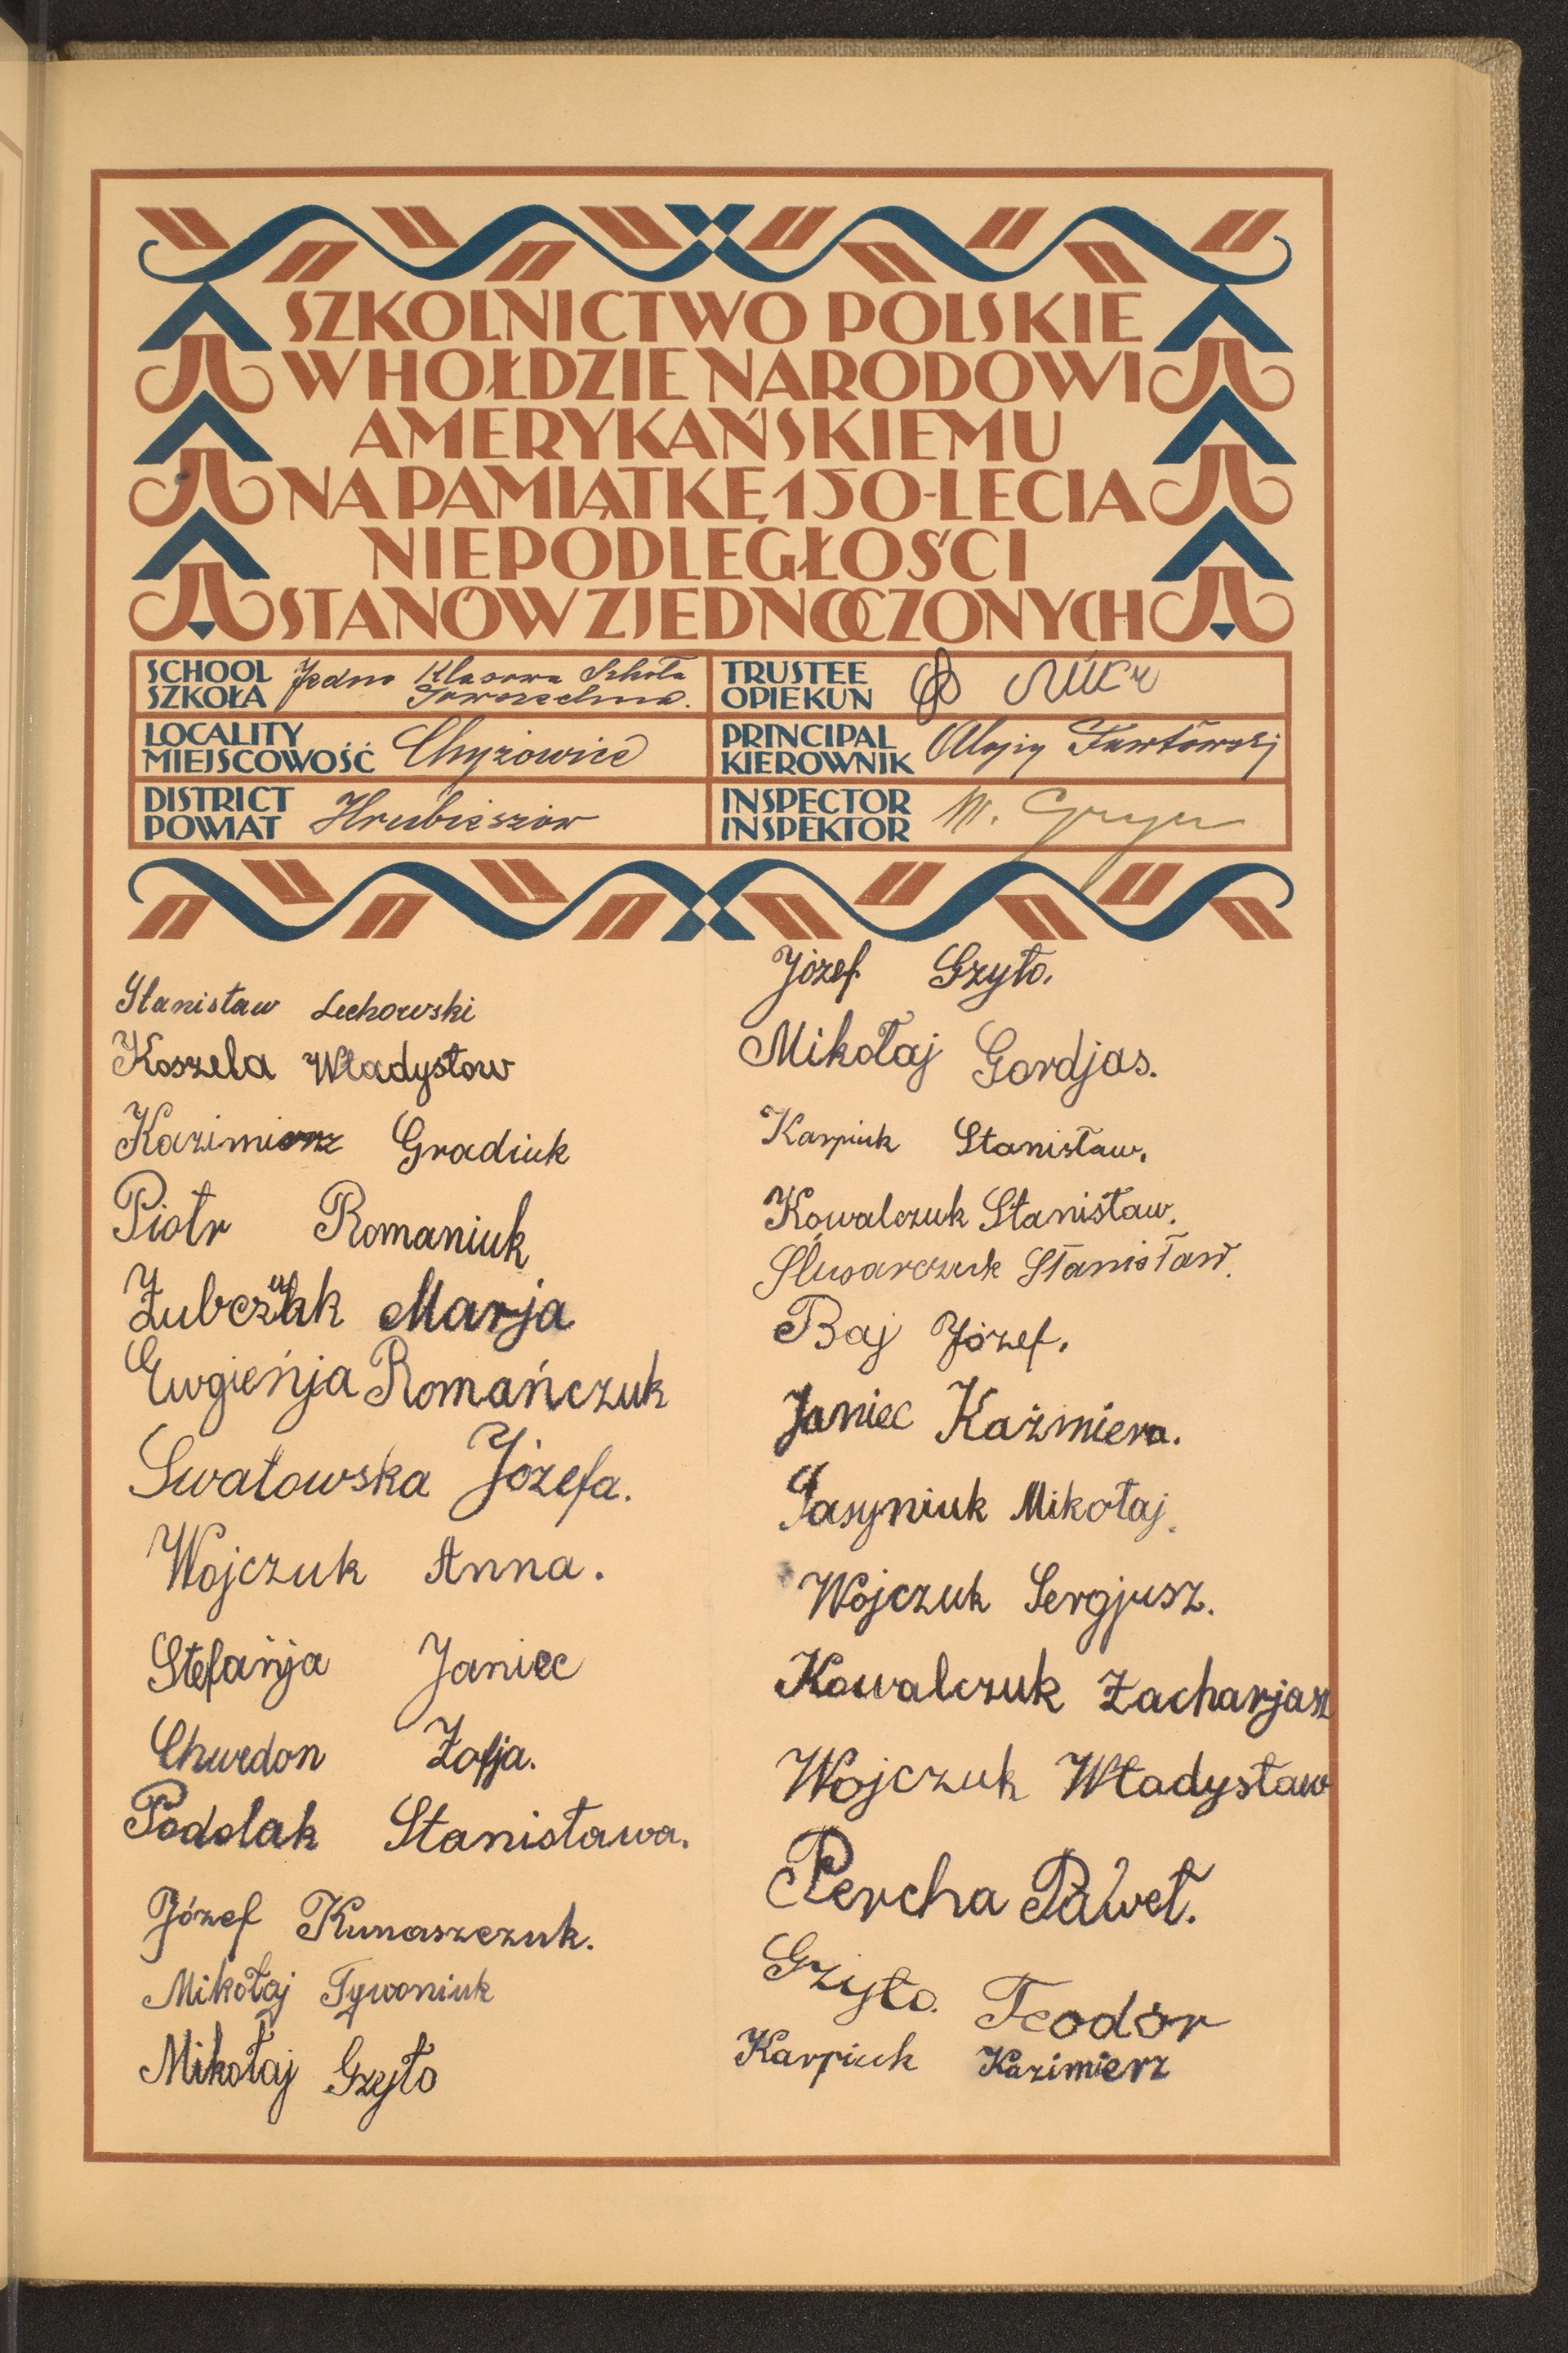 SZKOLNICTWO POLSKIE
W HOŁDZIE NARODOWI
AMERYKAŃSKIEMU
NA PAMIĄTKĘ 150-LECIA
NIEPODLEGŁOŚCI
STANÓW ZJEDNOCZONYCH
SCHOOL
SZKOŁA
Jedno Klasowa Szkoła
Powszechna.
TRUSTEE
OPIEKUN
LOCALITY
MIEJSCOWOŚĆ
Chyżowice
PRINCIPAL
KIEROWNIK
Alojzy
DISTRICT
POWIAT
Hrubieszów
INSPECTOR
INSPEKTOR
M.
Stanisław Lechowski
Koszela Władysłow
Kazimierz Gradiuk
Piotr Romaniuk
Żubczuk Marja
Ewgieńja Romańczuk
Swatowska Józefa.
Wojczuk Anna.
Stefańja Janiec
Chwedon Zofja.
Podolak Stanisława.
Józef Kunaszczuk.
Mikołaj Tywoniuk
Mikołaj Gzyło
Józef Gzyło.
Mikołaj Gordjas.
Karpiuk Stanisław.
Kowalczuk Stanisław.
Śluwarczuk Stanisław.
Baj Józef.
Janiec Kaźmiera.
Sasyniuk Mikołaj.
Wojczuk Sergjusz.
Kowalczuk Zacharjasz
Wojczuk Władysław
Percha Paweł.
Gzyło. Teodor
Karpiuk Kazimierz